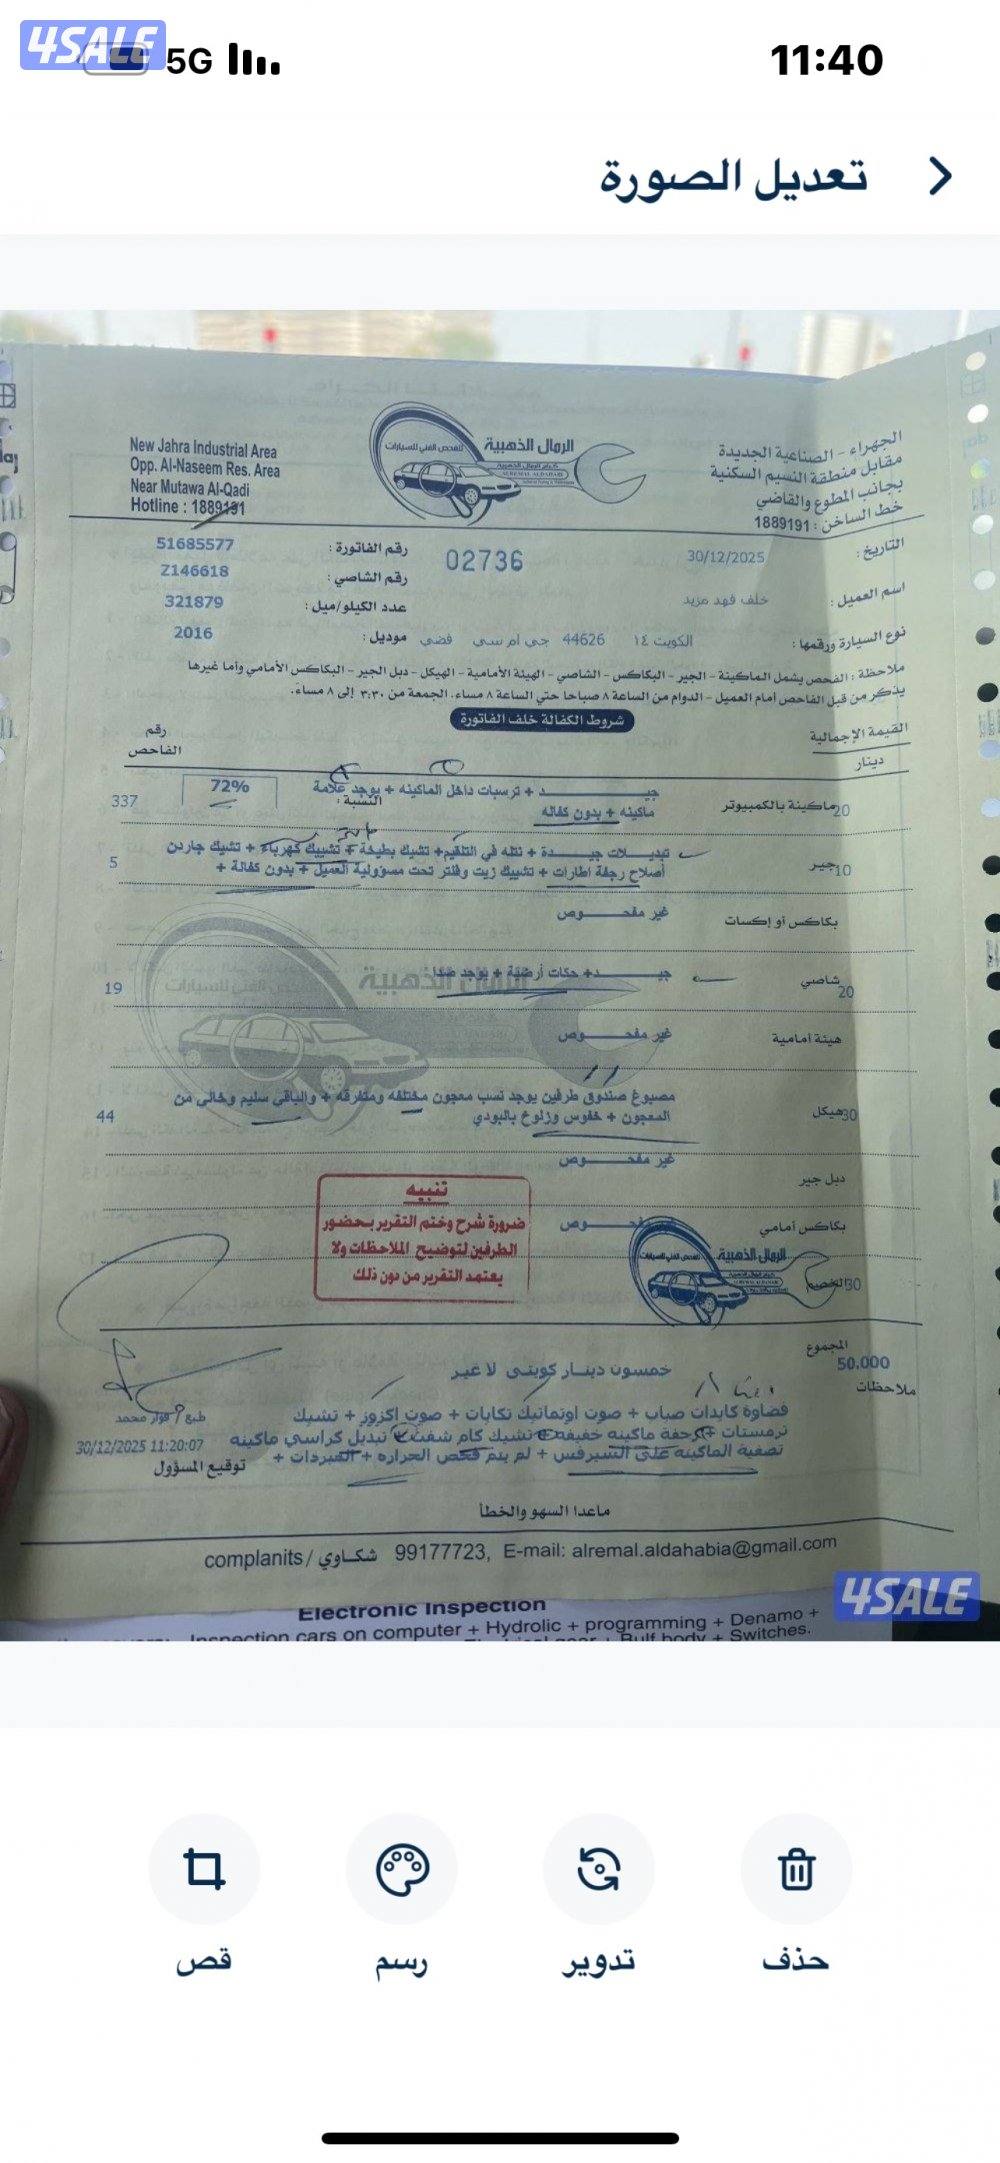 4SALE
5G
11:40
تعديل الصورة
New Jahra Industrial Area
Opp. Al-Naseem Res. Area
Near Mutawa Al-Qadi
Hotline : 1889191
الرمال الذهبية
للفحص الفني للسيارات
الجهراء - الصناعية الجديدة
مقابل منطقة النسيم السكنية
بجانب المطوع والقاضي
خط الساخن : 1889191
التاريخ : 30/12/2025
02736
رقم الفاتورة : 51685577
رقم الشاصي : Z146618
اسم العميل : خلف فهد مزيد
عدد الكيلو/ميل : 321879
نوع السيارة ورقمها : الكويت ١٤ 44626 جي ام سي فضي
موديل : 2016
ملاحظة : الفحص يشمل الماكينة - الجير - البكاكس - الشاصي - الهيئة الأمامية - الهيكل - دبل الجير - البكاكس الأمامي وأما غيرها
يذكر من قبل الفاحص أمام العميل - الدوام من الساعة ٨ صباحا حتى الساعة ٨ مساء، الجمعة من ٣:٣٠ إلى ٨ مساء.
شروط الكفالة خلف الفاتورة
القيمة الإجمالية
دينار
رقم
الفاحص
20 ماكينة بالكمبيوتر
جيــــــد + ترسبات داخل الماكينه + يوجد علامة
ماكينه + بدون كفاله
النسبة :
72%
337
10 جير
تبديـــلات جيـــدة + نتله في التلقيم + تشيك بطيخة + تشييك كهرباء + تشيك جاردن
أصلاح رجفة اطارات + تشييك زيت وفلتر تحت مسؤولية العميل + بدون كفالة +
5
بكاكس أو إكسات
غير مفحــــوص
20 شاصي
جيــــــد + حكات أرضية + يوجد صدا
19
هيئة أمامية
غير مفحــــوص
30 هيكل
مصبوغ صندوق طرفين يوجد نسب معجون مختلفه ومتفرقه + والباقي سليم وخالي من
المعجون + خفوس وزلوخ بالبودي
44
دبل جير
غير مفحــــوص
بكاكس أمامي
30 الخصم
تنبيه
ضرورة شرح وختم التقرير بحضور
الطرفين لتوضيح الملاحظات ولا
يعتمد التقرير من دون ذلك
الرمال الذهبية
المجموع
50.000
خمسون دينـار كويتى لا غير
ملاحظات
فضاوة كايدات صباب + صوت اوتماتيك تكايات + صوت اكزوز + تشيك
ترمستات + رجفة ماكينه خفيفه + تشيك كام شفت + تبديل كراسي ماكينه
تصفية الماكينه على السيرفس + لم يتم فحص الحراره + المبردات +
30/12/2025 11:20:07
توقيع المسؤول
ماعدا السهو والخطأ
complanits / شكاوي 99177723, E-mail: alremal.aldahabia@gmail.com
4SALE
Electronic Inspection
Inspection cars on computer + Hydrolic + programming + Denamo +
Bulf body + Switches.
حذف
تدوير
رسم
قص